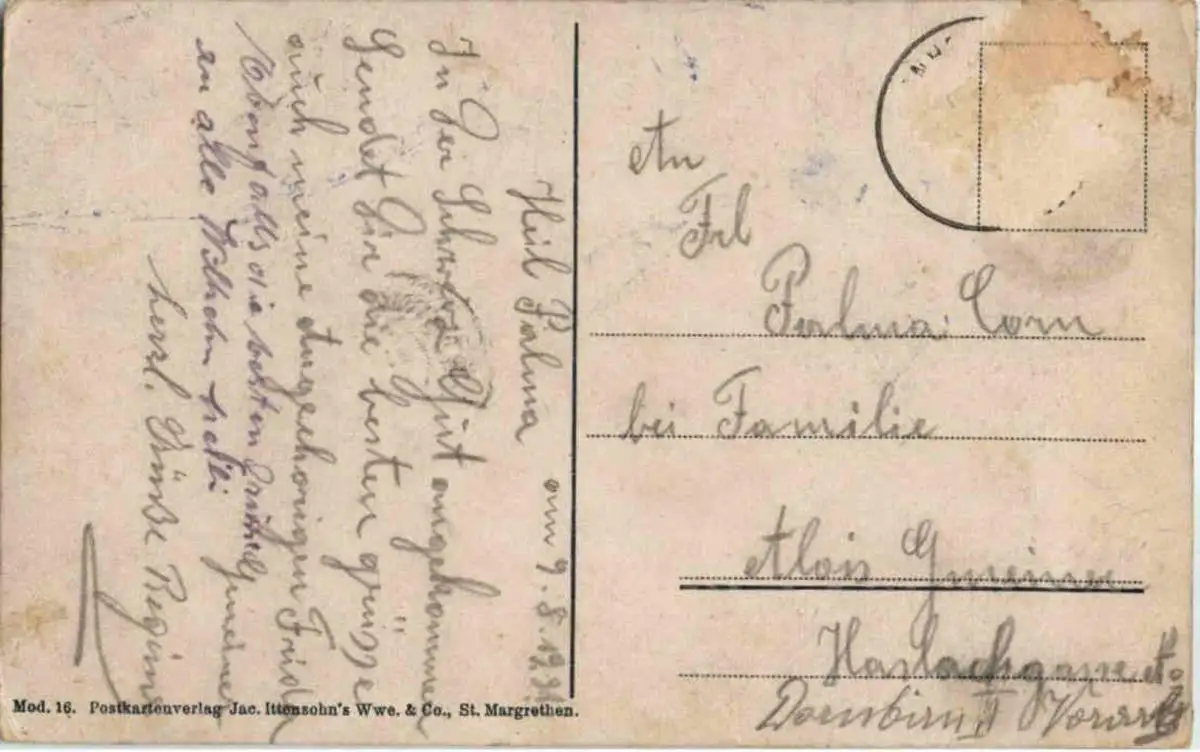 am 9.8.192
Heil Palma
In der Schweiz Gut angekommen
Sendet Dir die besten grüsse
auch meine Angehörigen Frieda
Ebenfalls die besten Grüße Gmeiner
an alle Wilhelm
herzl. Grüße Regina
An
Frl
Palma Corn
bei Familie
Alois Gmeiner
Haslachgasse
Dornbirn II Vorarlb
Mod. 16. Postkartenverlag Jac. Ittensohn's Wwe. & Co., St. Margrethen.